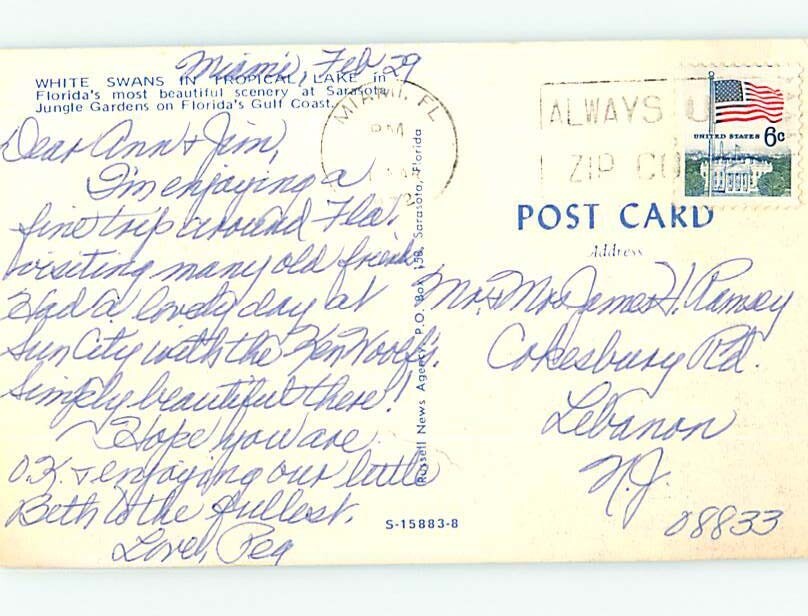 Miami, Feb 29
WHITE SWANS IN TROPICAL LAKE in
Florida's most beautiful scenery at Sarasota
Jungle Gardens on Florida's Gulf Coast.
Dear Ann & Jim,
I'm enjoying a
fine trip around Fla.
visiting many old friends
Had a lovely day at
Sun City with the Ken Woolf's.
Simply beautiful there!
Hope you are
O.K. & enjoying our little
Beth to the fullest.
Love, Peg
MIAMI, FL
PM
Russell News Agency, P.O. Box 158, Sarasota, Florida
S-15883-8
ALWAYS U
ZIP CO
UNITED STATES 6c
POST CARD
Address
Mr. & Mrs James H. Ramsey
Cokesbury Rd.
Lebanon
N.J.
08833